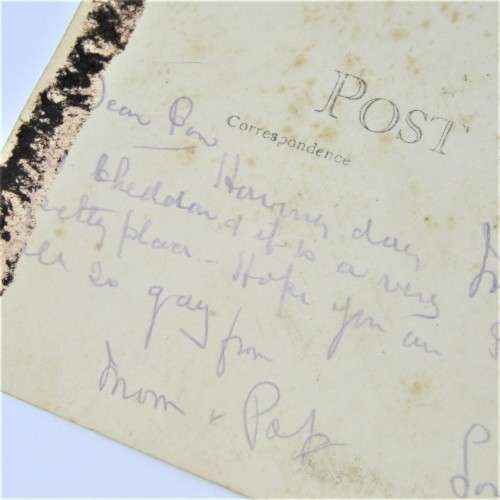 POST
Correspondence
Dear
Having day
Cheddar & it is a very
pretty place - Hope you are
so gay from
Mom & Pop